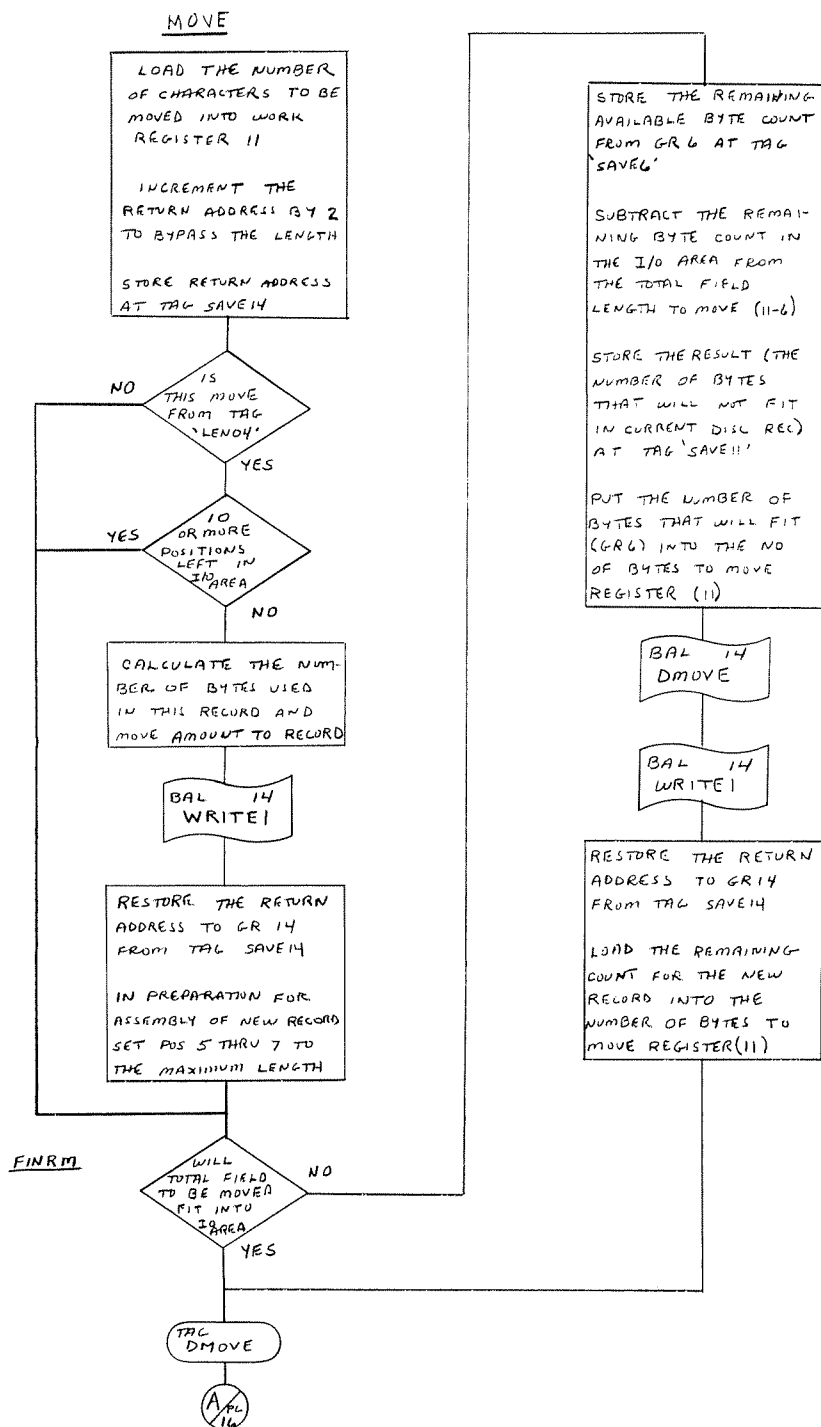 MOVE
LOAD THE NUMBER
OF CHARACTERS TO BE
MOVED INTO WORK
REGISTER 11
INCREMENT THE
RETURN ADDRESS BY 2
TO BYPASS THE LENGTH
STORE RETURN ADDRESS
AT TAG SAVE14
IS
THIS MOVE
FROM TAG
'LENO4'
NO
YES
10
OR MORE
POSITIONS
LEFT IN
I/O
AREA
YES
NO
CALCULATE THE NUM-
BER OF BYTES USED
IN THIS RECORD AND
MOVE AMOUNT TO RECORD
BAL 14
WRITE1
RESTORE THE RETURN
ADDRESS TO GR 14
FROM TAG SAVE14
IN PREPARATION FOR
ASSEMBLY OF NEW RECORD
SET POS 5 THRU 7 TO
THE MAXIMUM LENGTH
FINRM
WILL
TOTAL FIELD
TO BE MOVED
FIT INTO
I/O
AREA
NO
YES
TAG
DMOVE
A
PL
16
STORE THE REMAINING
AVAILABLE BYTE COUNT
FROM GR 6 AT TAG
'SAVE6'
SUBTRACT THE REMAI-
NING BYTE COUNT IN
THE I/O AREA FROM
THE TOTAL FIELD
LENGTH TO MOVE (11-6)
STORE THE RESULT (THE
NUMBER OF BYTES
THAT WILL NOT FIT
IN CURRENT DISC REC)
AT TAG 'SAVE11'
PUT THE NUMBER OF
BYTES THAT WILL FIT
(GR6) INTO THE NO
OF BYTES TO MOVE
REGISTER (11)
BAL 14
DMOVE
BAL 14
WRITE1
RESTORE THE RETURN
ADDRESS TO GR14
FROM TAG SAVE14
LOAD THE REMAINING
COUNT FOR THE NEW
RECORD INTO THE
NUMBER OF BYTES TO
MOVE REGISTER(11)